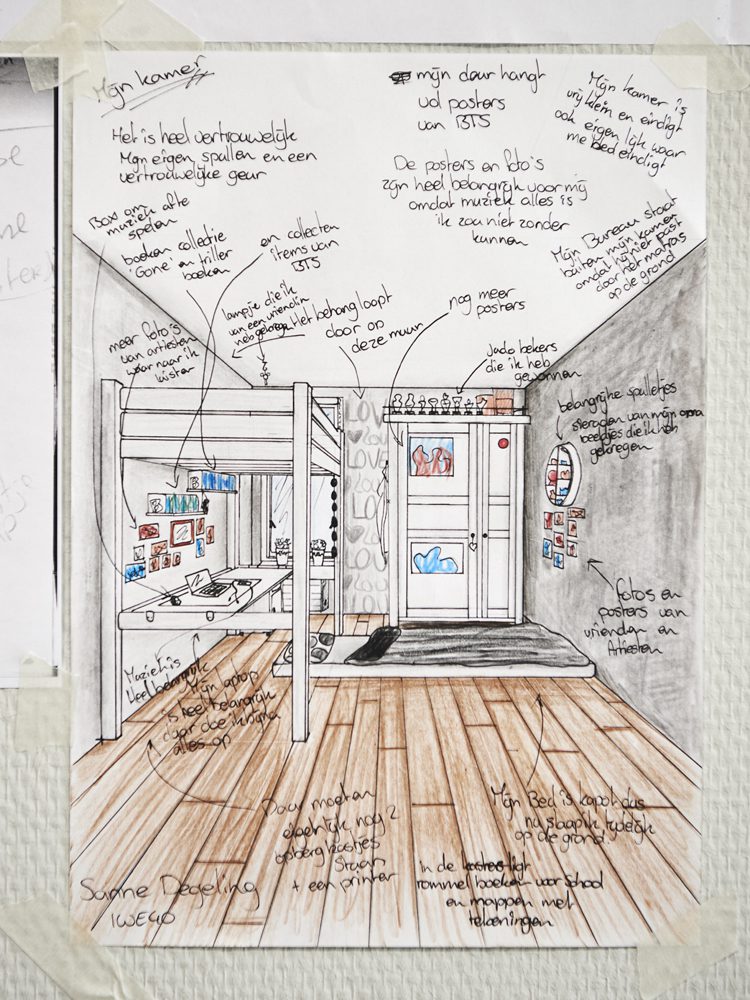 Mijn kamer
Het is heel vertrouwelijk
Mijn eigen spullen en een
vertrouwelijke geur
mijn deur hangt
vol posters
van BTS
Mijn kamer is
vrij klein en eindigt
ook eigenlijk waar
me bed eindigt
De posters en foto's
zijn heel belangrijk voor mij
omdat muziek alles is
ik zou niet zonder
kunnen
Box om
muziek af te
spelen
boeken collectie
'Gone' en triller
boeken
en collecten
items van
BTS
Mijn Bureau staat
buiten mijn kamer
omdat hij niet past
door het matras
op de grond
lampje die ik
van een vriendin
heb gekregen
Het behang loopt
door op
deze muur
nog meer
posters
meer foto's
van artiesten
waar naar ik
luister
Judo bekers
die ik heb
gewonnen
belangrijke spulletjes
sieraden van mijn oma
beeldjes die ik heb
gekregen
LOVE
love
LOVE
love
LO
love
LO
love
LO
fotos en
posters van
vrienden en
Artiesten
Muziek is
Heel belangrijk
Mijn laptop
is heel belangrijk
daar doe ik bijna
alles op
Daar moeten
eigenlijk nog 2
opberg kastjes
Staan
+ een printer
Mijn Bed is kapot dus
nu slaap ik tijdelijk
op de grond
in de kastjes ligt
rommel boeken voor School
en mappen met
tekeningen
Sanne Degeling
1WE40